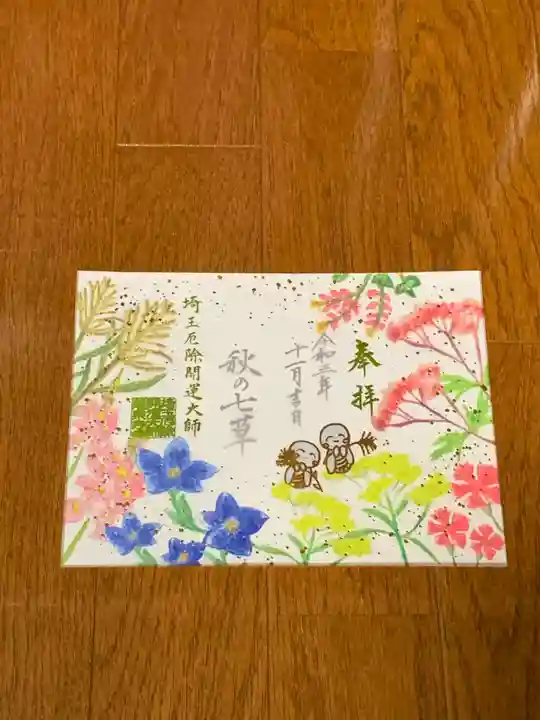 奉拝
令和三年
十一月吉日
秋の七草
埼玉厄除開運大師